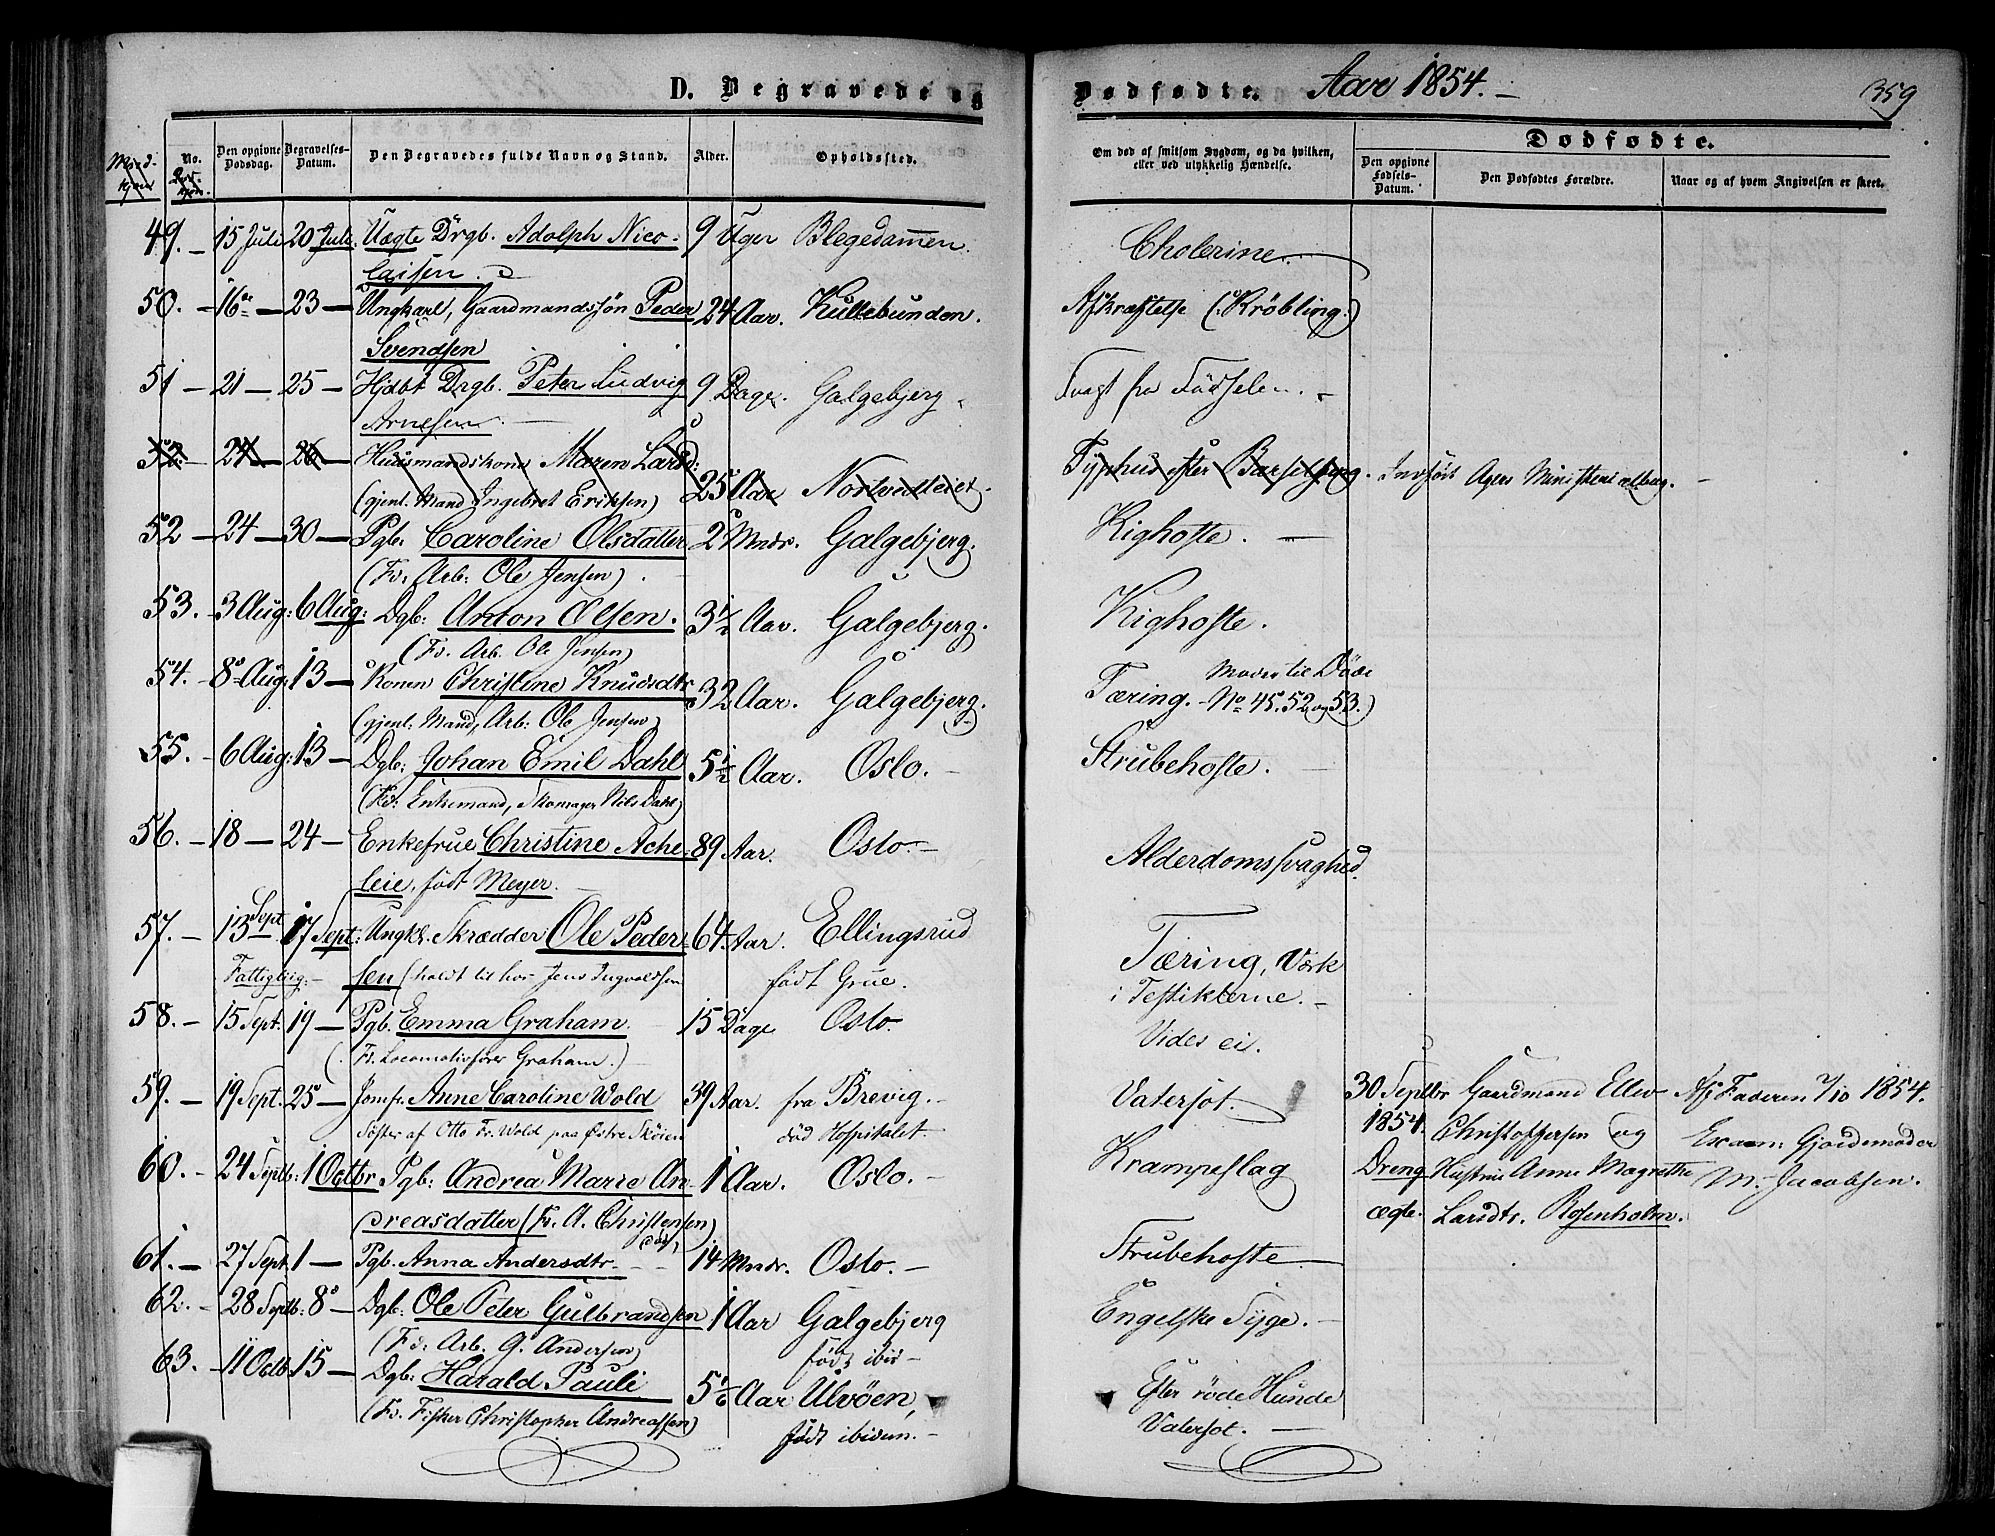 D. Begravede og Dødfødte. Aar 1854. 359
No. Den opgivne Dødsdag. Begravelses-Datum. Den Begravedes fulde Navn og Stand. Alder. Opholdssted.
Om død af smitsom Sygdom, og da hvilken, eller ved ulykkelig Hændelse.
Dødfødte.
Den opgivne Fødsels-Datum. Den Dødfødtes Forældre. Naar og af hvem Angivelsen er skeet.
49. - 15 Juli 20 Juli. Uægte Drgb. Adolph Nico- 9 Uger Blegedammen. Cholerine.
laisen.
50. - 16de - 23 - Ungkarl, Gaardmandssøn Peder 24 Aar. Kullebunden. Afkræftelse (: Krøbling.)
Svendsen
51 - 21 - 25 - Hjdbt Drgb. Peter Ludvig 9 Dage. Galgebjerg Svagt fra Fødselen.
Arnesen.
52. - 24 - 26 - Huusmandskone Maren Larsd: 25 Aar Nortvedteiet. Typhus efter Barselseng. Indført Agers Ministerialbog.
(gjenl. Mand Ingebret Eriksen)
52 - 24 - 30 - Pgb. Caroline Olsdatter 2 Mndr. Galgebjerg. Kighoste.
(Fr. Arb. Ole Jensen).
53. - 3 Aug: 6 Aug: Dgb: Anton Olsen. 3½ Aar. Galgebjerg. Kighoste.
(Fr. Arb. Ole Jensen)
54. - 8de Aug: 13 - Konen Christine Knudsdtr 32 Aar. Galgebjerg. Tæring. Moder til Døde
No 45. 52 og 53.)
(gjenl. Mand, Arb. Ole Jensen)
55. - 6 Aug: 13 - Dgb: Johan Emil Dahl 5½ Aar. Oslo. - Strubehoste.
(Fr. Enkemand, Skomager Nils Dahl)
56. - 18 - 24 - Enkefrue Christine Ache- 89 Aar. Oslo. - Alderdomssvaghed.
leie, født Meyer. -
57. - 13 Sept. 17 Sept: Ungk. Skrædder Ole Peder- 64 Aar. Ellingsrud Tæring, Værk
Fattiglig. - sen (holdt til hos Jens Ingvaldsen født Grue. i Testiklerne. -
58. - 15 Sept. 19 - Pgb. Emma Graham. 15 Dage Oslo. Vides ei.
(Fr. Locomotivfører Graham.)
59. - 19 Sept. 25 - Jomfr. Anne Caroline Wold 39 Aar. fra Brevig. - Vatersot.
Søster af Otto Fr. Wold paa Østre Skøien død Hospitalet.
60. - 24 Septb: 1 Octbr Pgb: Andrea Marie An- 1 Aar. Oslo. - Krampeslag
dreasdatter (Fr. A. Christensen)
61. - 27 Sept. 1 - Pgb. Anna Andersdtr. 14 Mndr. Oslo. - Strubehoste
62. - 28 Septb: 8de - Dgb: Ole Peter Gulbrandsen 1 Aar Galgebjerg Engelske Syge. -
(Fr. Arb. G. Andersen) født ibid -
63. - 11 Octb. 15 - Dgb: Harald Pauli Aar Ulvøen, Efter røde Hunde
(Fr. Fisker Christopher Andreassen) født ibidem. - Vatersot. -
30 Septbr Gaardmand Ellev Af Faderen 2/10 1854.
1854. Christoffersen og Exam: Gjordemoder
Dreng Hustrue Anne Magrethe M. Jacobsen.
ægte. Larsdtr. Rosenholm.